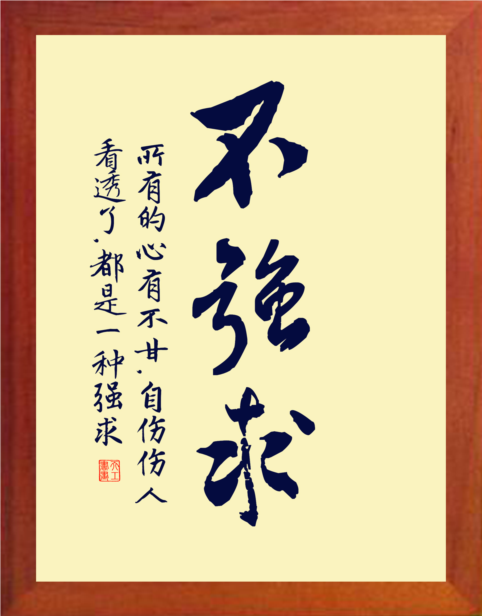 不強求
所有的心有不甘.自伤伤人
看透了.都是一种强求